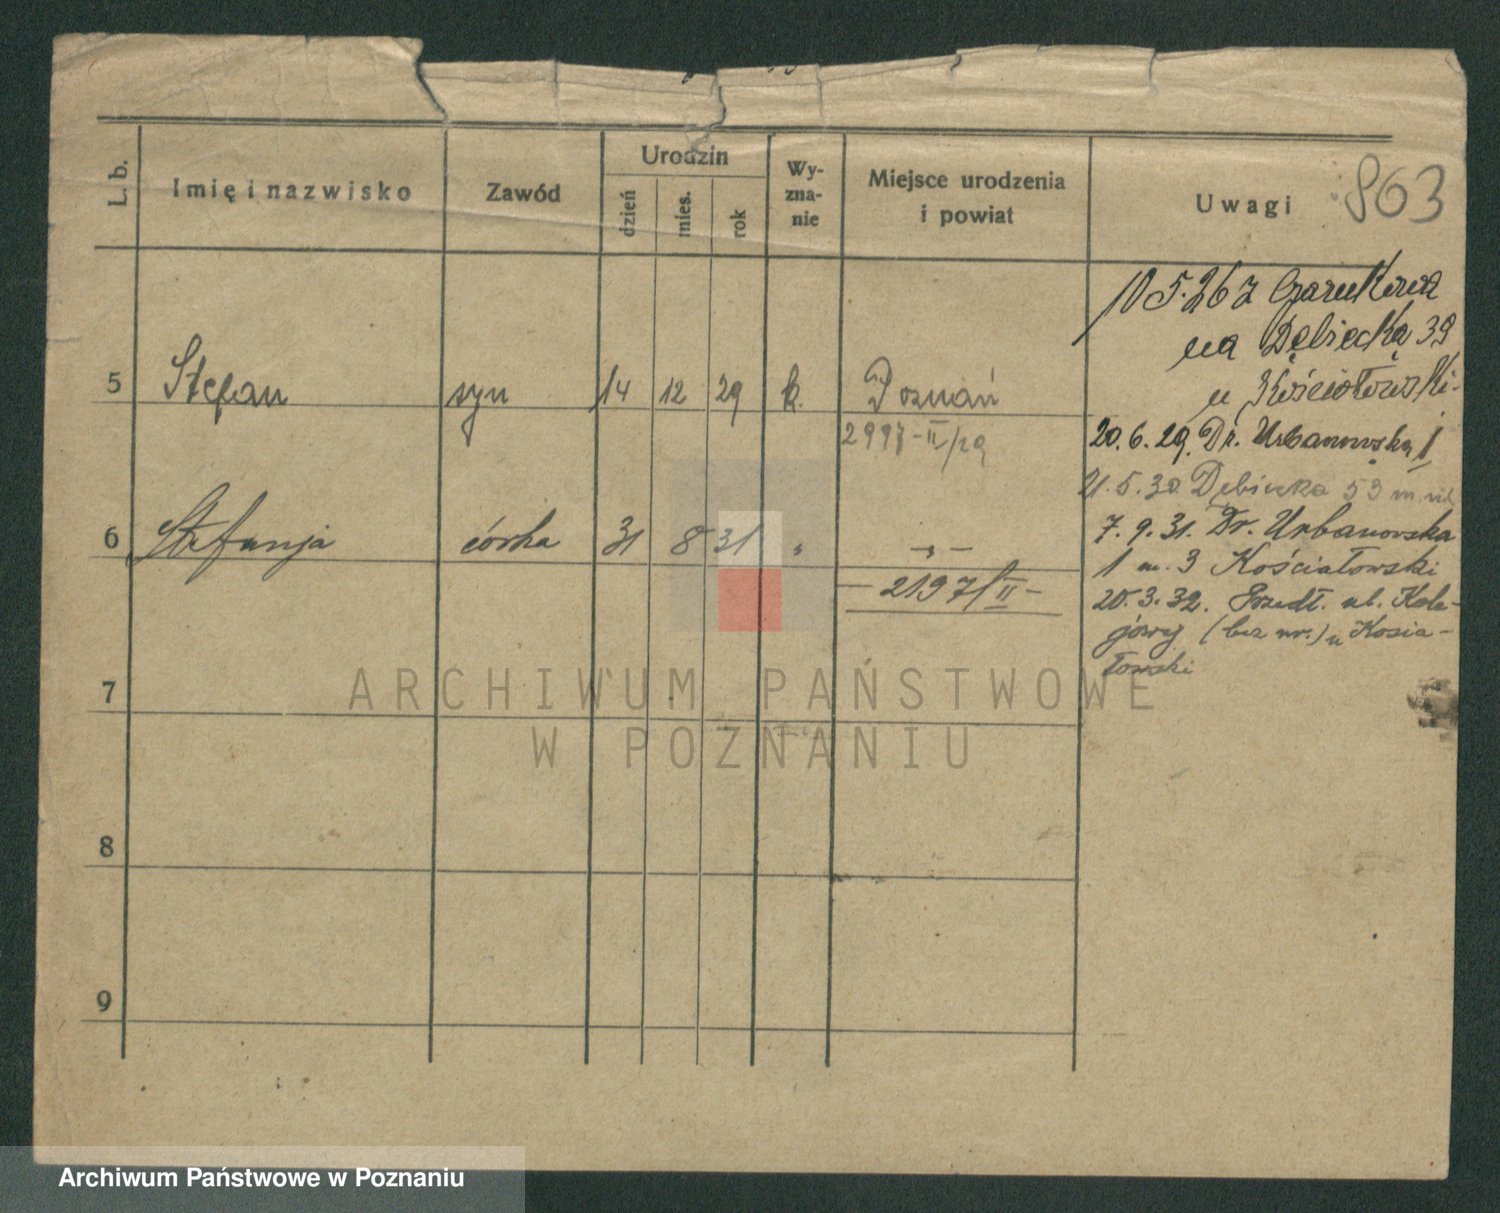 L. b.
Imię i nazwisko
Zawód
Urodzin
dzień
mies.
rok
Wy-
zna-
nie
Miejsce urodzenia
i powiat
Uwagi
863
5 Stefan syn 14 12 29 k. Poznań
2997-II/29
6 Stefanja córka 31 8 31 " - " -
- 2197/II -
7
8
9
10 5. 26 z Czarnkowa
na Dębiecką 39
u Kościołowski-
20. 6. 29. Dr. Urbanowska 1
21. 5. 30. Dębiecka 53 m.
7. 9. 31. Dr. Urbanowska
1 m. 3 Kościałowski
20. 3. 32. Przedł. ul. Kole-
jowej (bez nr.) u Kosia-
łowski
ARCHIWUM PAŃSTWOWE
W POZNANIU
Archiwum Państwowe w Poznaniu